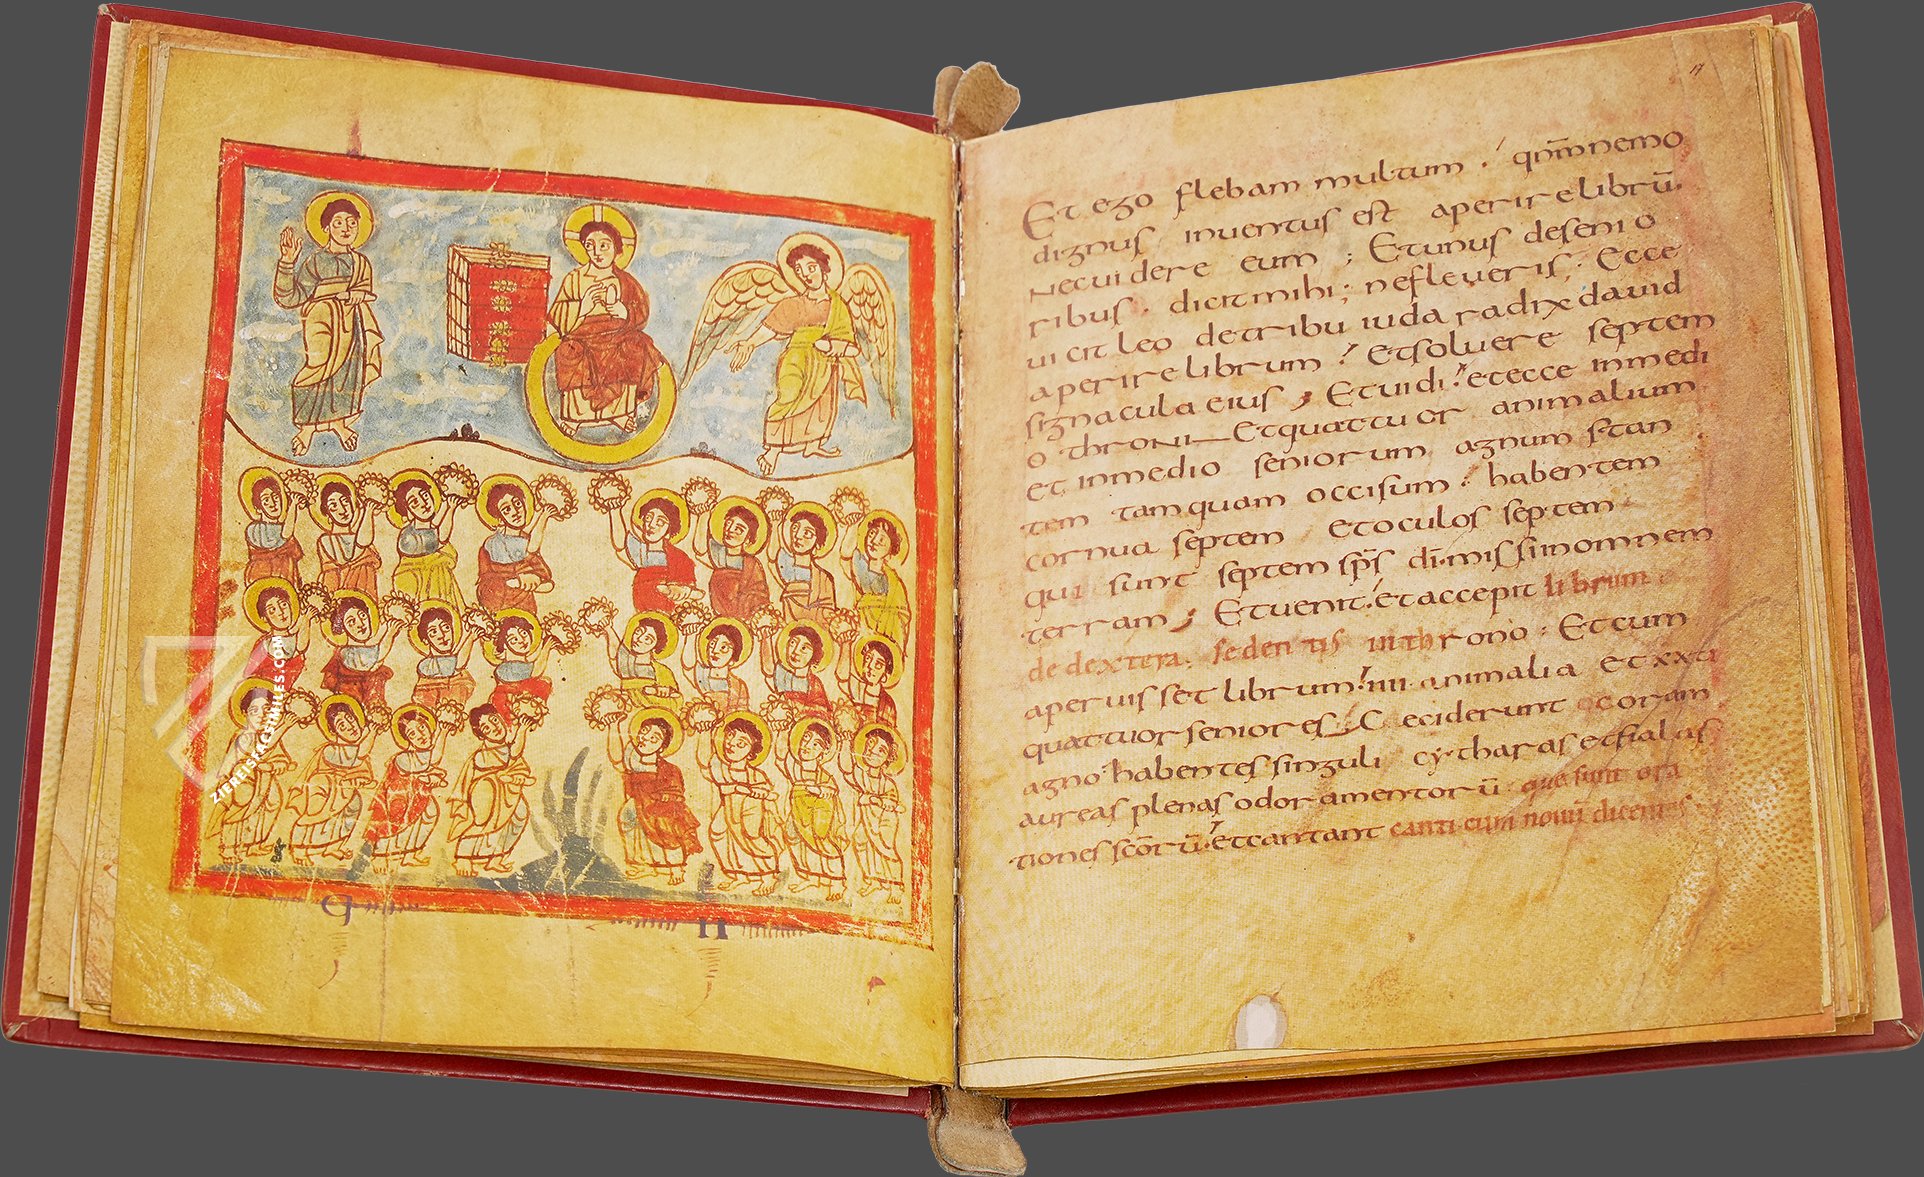 ZIEREISFACSIMILES.COM
q
n
17
Et ego flebam multum. qnm̄ nemo
dignus inuentus est aperire librū.
Nec uidere eum; Et unus de senio
ribus. dicit mihi; ne fleueris; Ecce
uicit leo de tribu iuda radix dauid
aperire librum! Et soluere septem
signacula eius; Et uidi! et ecce in medi
o throni Et quattuor animalium
et in medio seniorum agnum stan
tem tamquam occisum! habentem
cornua septem Et oculos septem
qui sunt septem sp̄s di. missi in omnem
terram; Et uenit! et accepit librum
de dextera. sedentis in throno; Et cum
aperuisset librum! IIII. animalia Et xxti
quattuor seniores; Ceciderunt coram
agno habentes singuli cytharas et fialas
aureas plenas odoramentorū que sunt ora
tiones sc̄orū! et cantant canticum nouū dicentes